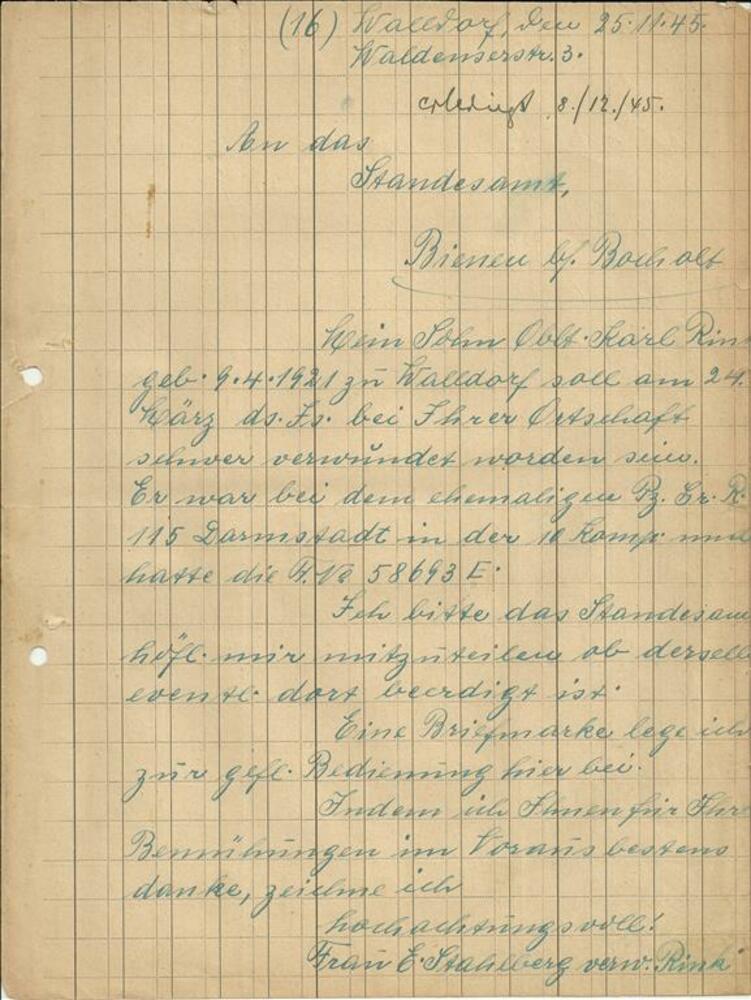 (16) Walldorf, den 25.11.45.
Waldenserstr. 3.
erledigt 8./12./45.
An das
Standesamt,
Bienen b/. Bocholt
Mein Sohn Oblt. Karl Rin
geb. 9.4.1921 zu Walldorf soll am 24.
März ds. Js. bei Ihrer Ortschaft
schwer verwundet worden sein.
Er war bei dem ehemaligen Pz. Gr. R.
115 Darmstadt in der 10 Komp. und
hatte die F.No 58693 E.
Ich bitte das Standesam
höfl. mir mitzuteilen ob derselb
eventl. dort beerdigt ist.
Eine Briefmarke lege ich
zur gefl. Bedienung hier bei.
Indem ich Ihnen für Ihre
Bemühungen im Voraus bestens
danke, zeichne ich
hochachtungsvoll!
Frau E. Stahlberg verw. Rink